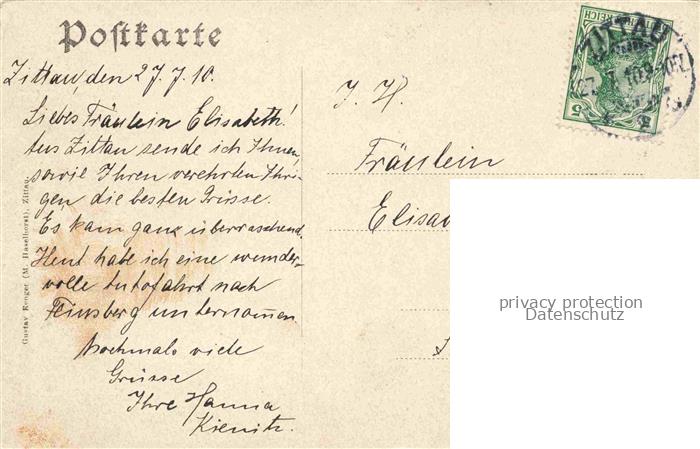 Postkarte
Zittau, den 27.7.10.
Liebes Fräulein Elisabeth!
Aus Zittau sende ich Ihnen,
sowie Ihren verehrten Ihri-
gen die besten Grüsse.
Es kam ganz überraschend.
Heut habe ich eine wunder-
volle Autofahrt nach
unternommen.
Nochmals viele
Grüsse
Ihre Hanna
Kienitz.
Gustav Renger (M. Haselhorst), Zittau.
Fräulein
ZITTAU
5
5
privacy protection
Datenschutz